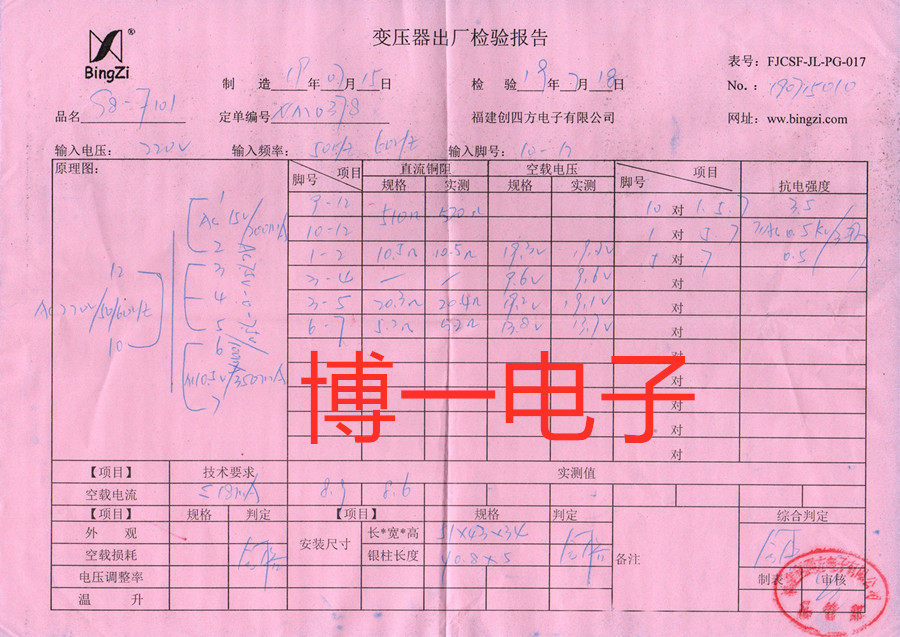 BingZi®
变压器出厂检验报告
表号：FJCSF-JL-PG-017
制 造 19年07月15日
检 验 19年7月18日
No.：190715010
品名 S8-7101
定单编号
福建创四方电子有限公司
网址：ww.bingzi.com
输入电压：220V
输入频率：50Hz 60Hz
输入脚号：10-12
原理图：
脚号 项目 直流铜阻 空载电压 脚号 项目 抗电强度
规格 实测 规格 实测
9-12 510Ω 520Ω
10 对 1.5.7 3.5
10-12
1 对 5.7
1-2 10.5Ω 10.5Ω 19.3V 19.2V
5 对 7 0.5
3-4 — 9.6V 9.6V
对
3-5 20.3Ω 20.4Ω 19.2V 19.1V
对
6-7 5.2Ω 13.8V 13.7V
对
对
对
对
对
对
12
AC220V/50/60Hz
10
1
AC 15V/300mA
2
3
4
5
6
AC10.5V/350mA
7
博一电子
【项目】 技术要求 实测值
空载电流 ≤18mA 8.9 8.6
【项目】 规格 判定 【项目】 规格 判定 综合判定
外 观
空载损耗
电压调整率
温 升
安装尺寸
长*宽*高 51×43×34
银柱长度 40.8×5
备注
合格
合格
合格
制表 审核
品管部